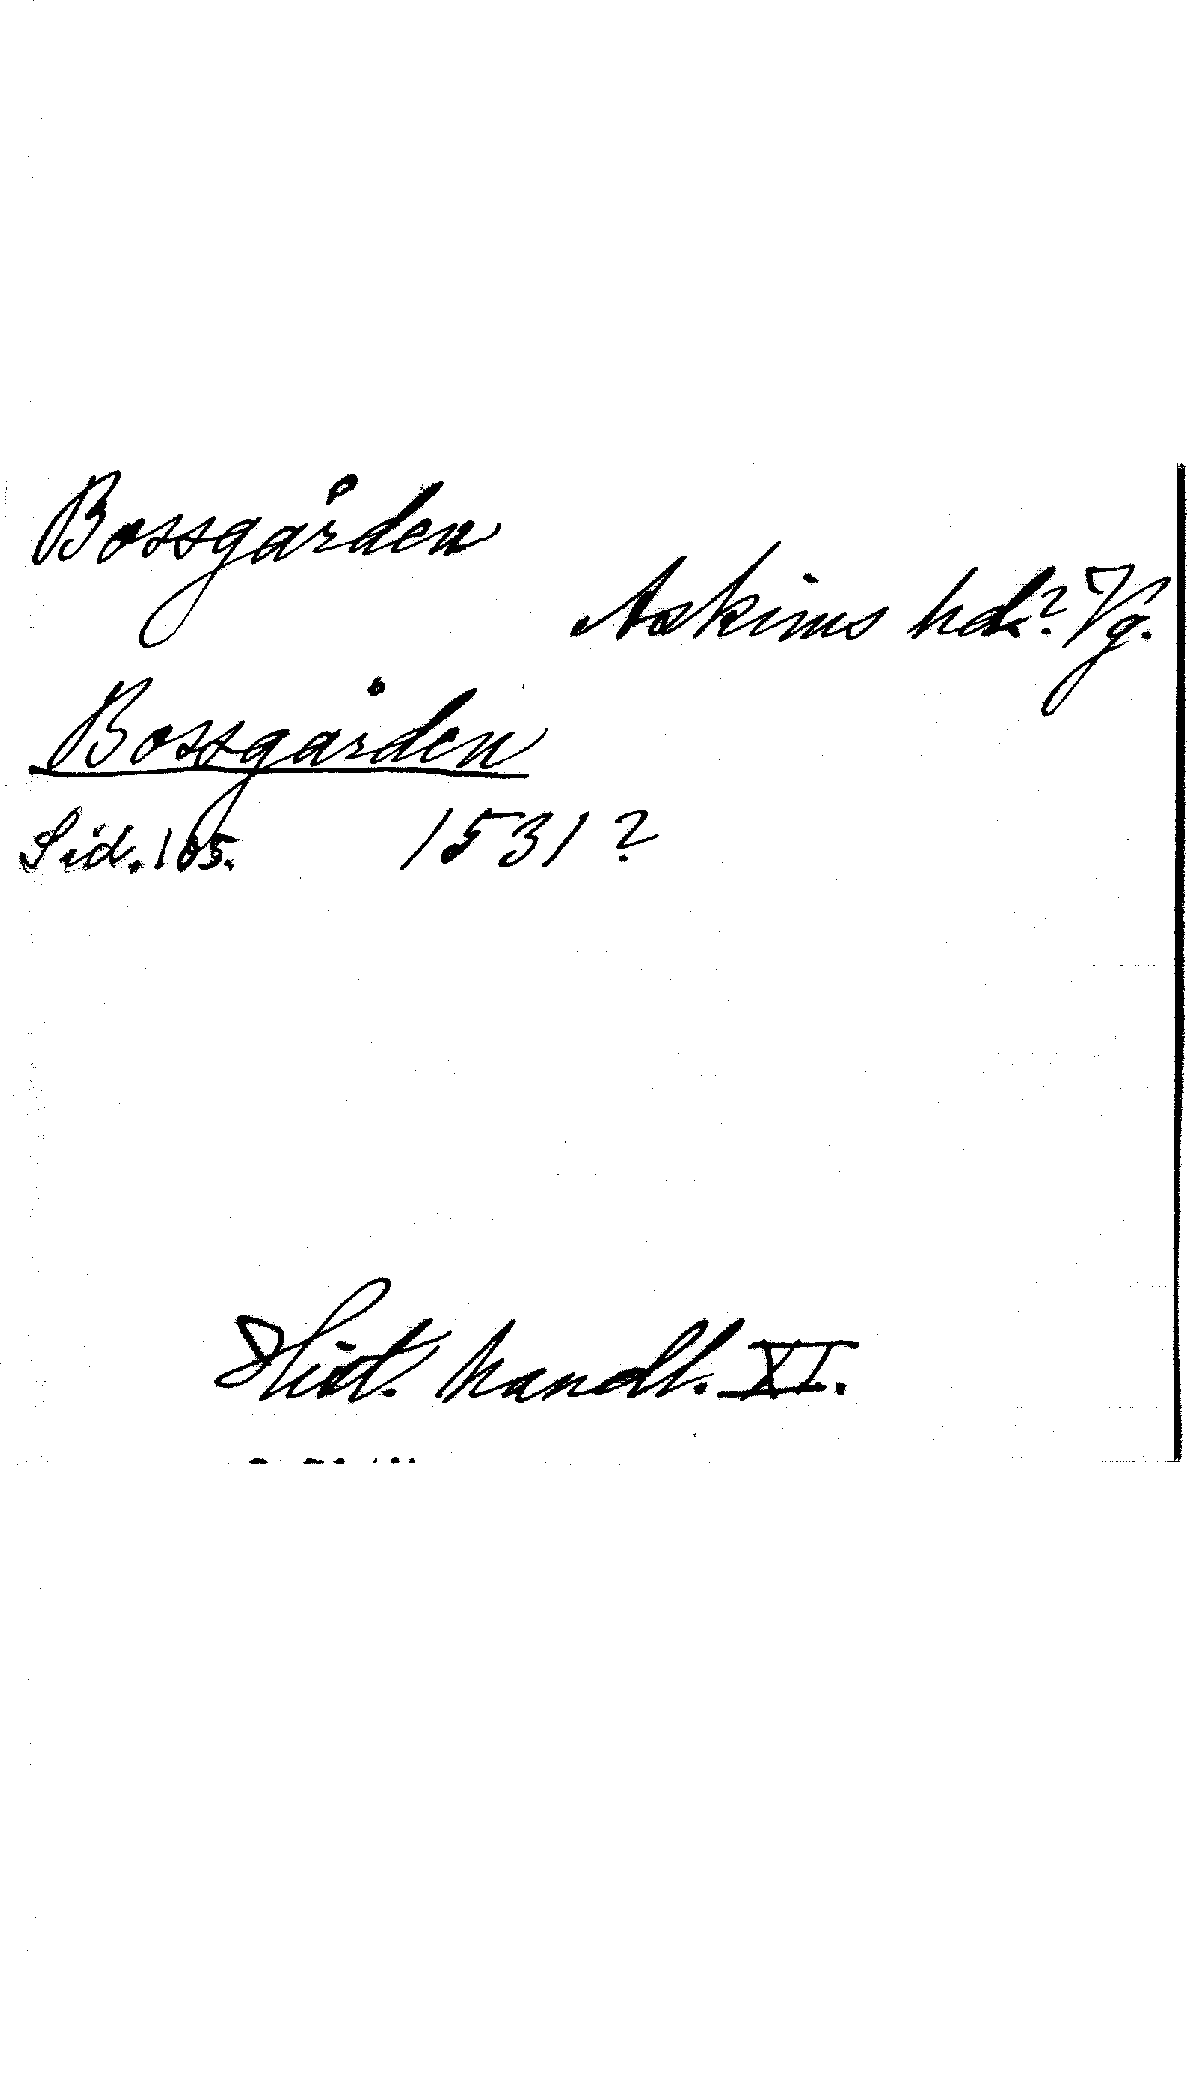 Bossgården
Askims hd.? Vg.
Bossgården
Sid. 105. 1531?
Hist. handl. XI.